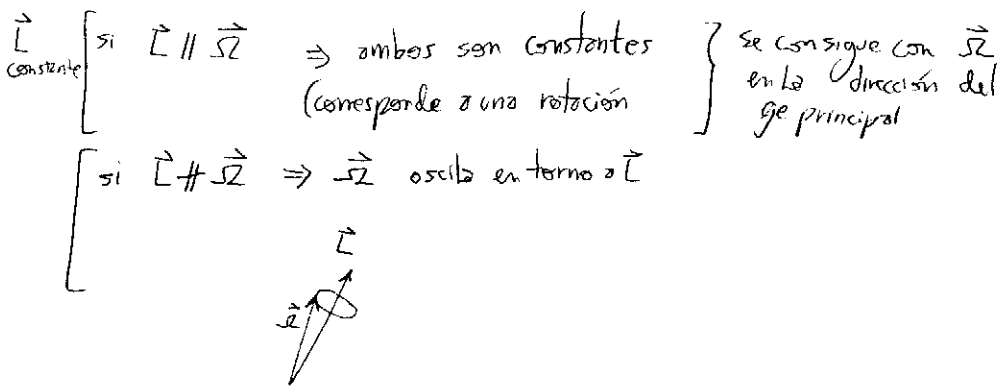 L⃗ constante si L⃗ // Ω⃗ ⇒ ambos son constantes
(corresponde a una rotación
se consigue con Ω⃗
en la dirección del
eje principal
si L⃗ ∦ Ω⃗ ⇒ Ω⃗ oscila en torno a L⃗
L⃗
Ω⃗